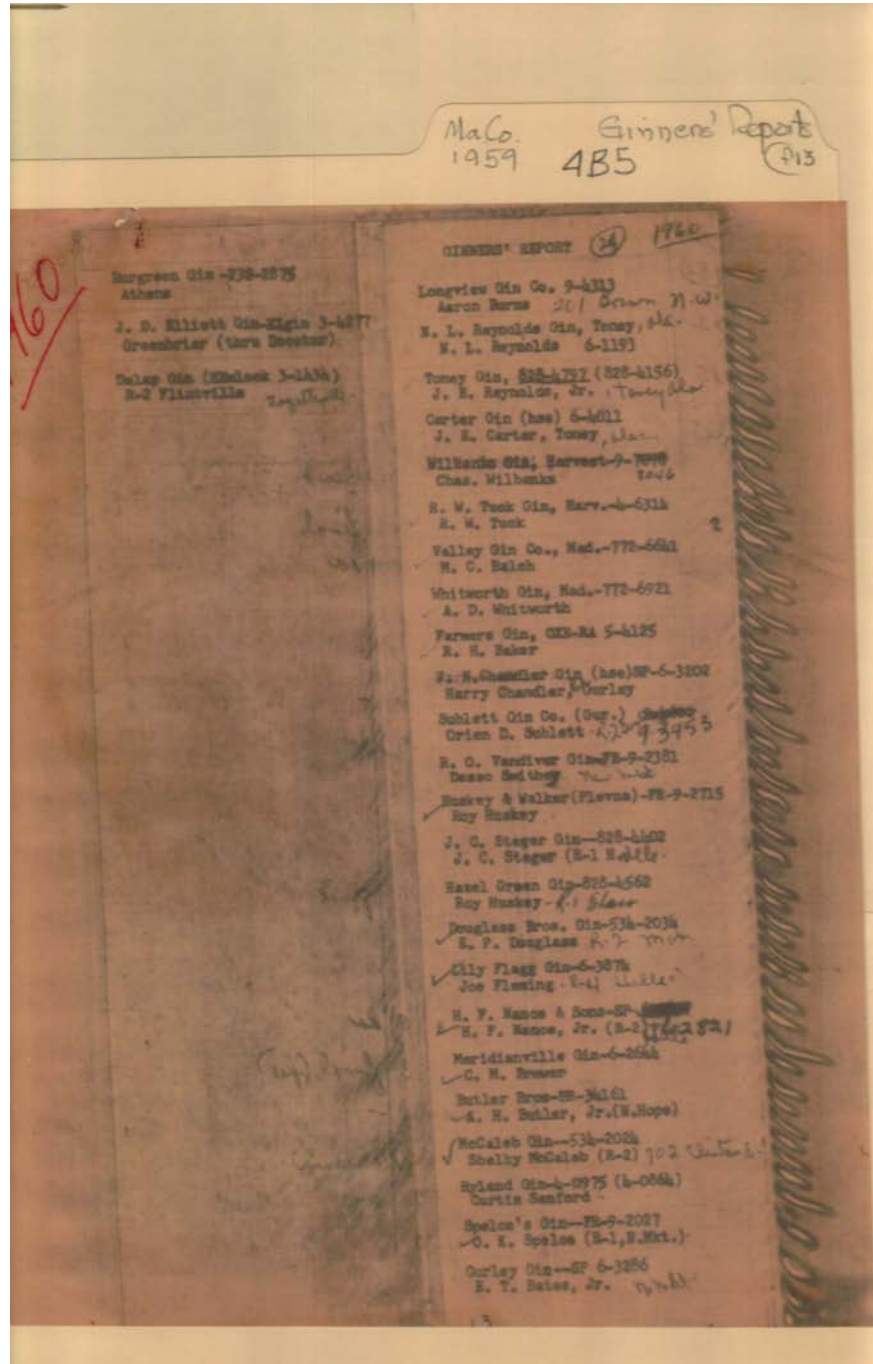 MaCo. Ginners' Reports
1959 4B5 P13
1960
Burgreen Gin -238-2875
Athens
J. D. Elliott Gin-Elgin 3-4277
Greenbriar (thru Decatur)
Delap Gin (HEmlock 3-1434)
R-2 Flintville
GINNERS' REPORT 1960
Longview Gin Co. 9-4313
Aaron Burns 201 Brown N.W.
N. L. Reynolds Gin, Toney, Ala.
N. L. Reynolds 6-1193
Toney Gin, 828-4797 (828-4156)
J. E. Reynolds, Jr., Toney Ala
Carter Gin (hse) 6-4811
J. E. Carter, Toney, Ala
Wilbanks Gin, Harvest-9-
Chas. Wilbanks
R. W. Tuck Gin, Harv.-4-6314
R. W. Tuck 2
Valley Gin Co., Mad.-772-6641
M. C. Balch
Whitworth Gin, Mad.-772-6921
A. D. Whitworth
Farmers Gin, OXR-RA 5-4125
R. H. Baker
Chandler Gin (hse)SP-6-3202
Harry Chandler, Gurley
Sublett Gin Co. (Gur.)
Orien D. Sublett R-2 93953
R. O. Vandiver Gin-FR-9-2381
Desso Smithey
Huskey & Walker(Plevna)-FR-9-2715
Roy Huskey
J. C. Steger Gin--828-4402
J. C. Steger (R-1
Hazel Green Gin-828-4562
Roy Huskey-R-1
Douglass Bros. Gin-534-2034
E. P. Douglass R-2
Lily Flagg Gin-6-3874
Joe Fleming R-4
H. F. Nance & Sons-SP
H. F. Nance, Jr. (R-2) 2821
Meridianville Gin-6-2644
C. M. Brewer
Butler Bros-
A. H. Butler, Jr.(N.Hope)
McCaleb Gin--534-2024
Shelby McCaleb (R-2) 702
Ryland Gin-4-0975 (4-0864)
Curtis Sanford
Spelce's Gin--FR-9-2027
O. K. Spelce (R-1,N.Mkt.)
Gurley Gin--SP 6-3286
E. T. Bates, Jr.